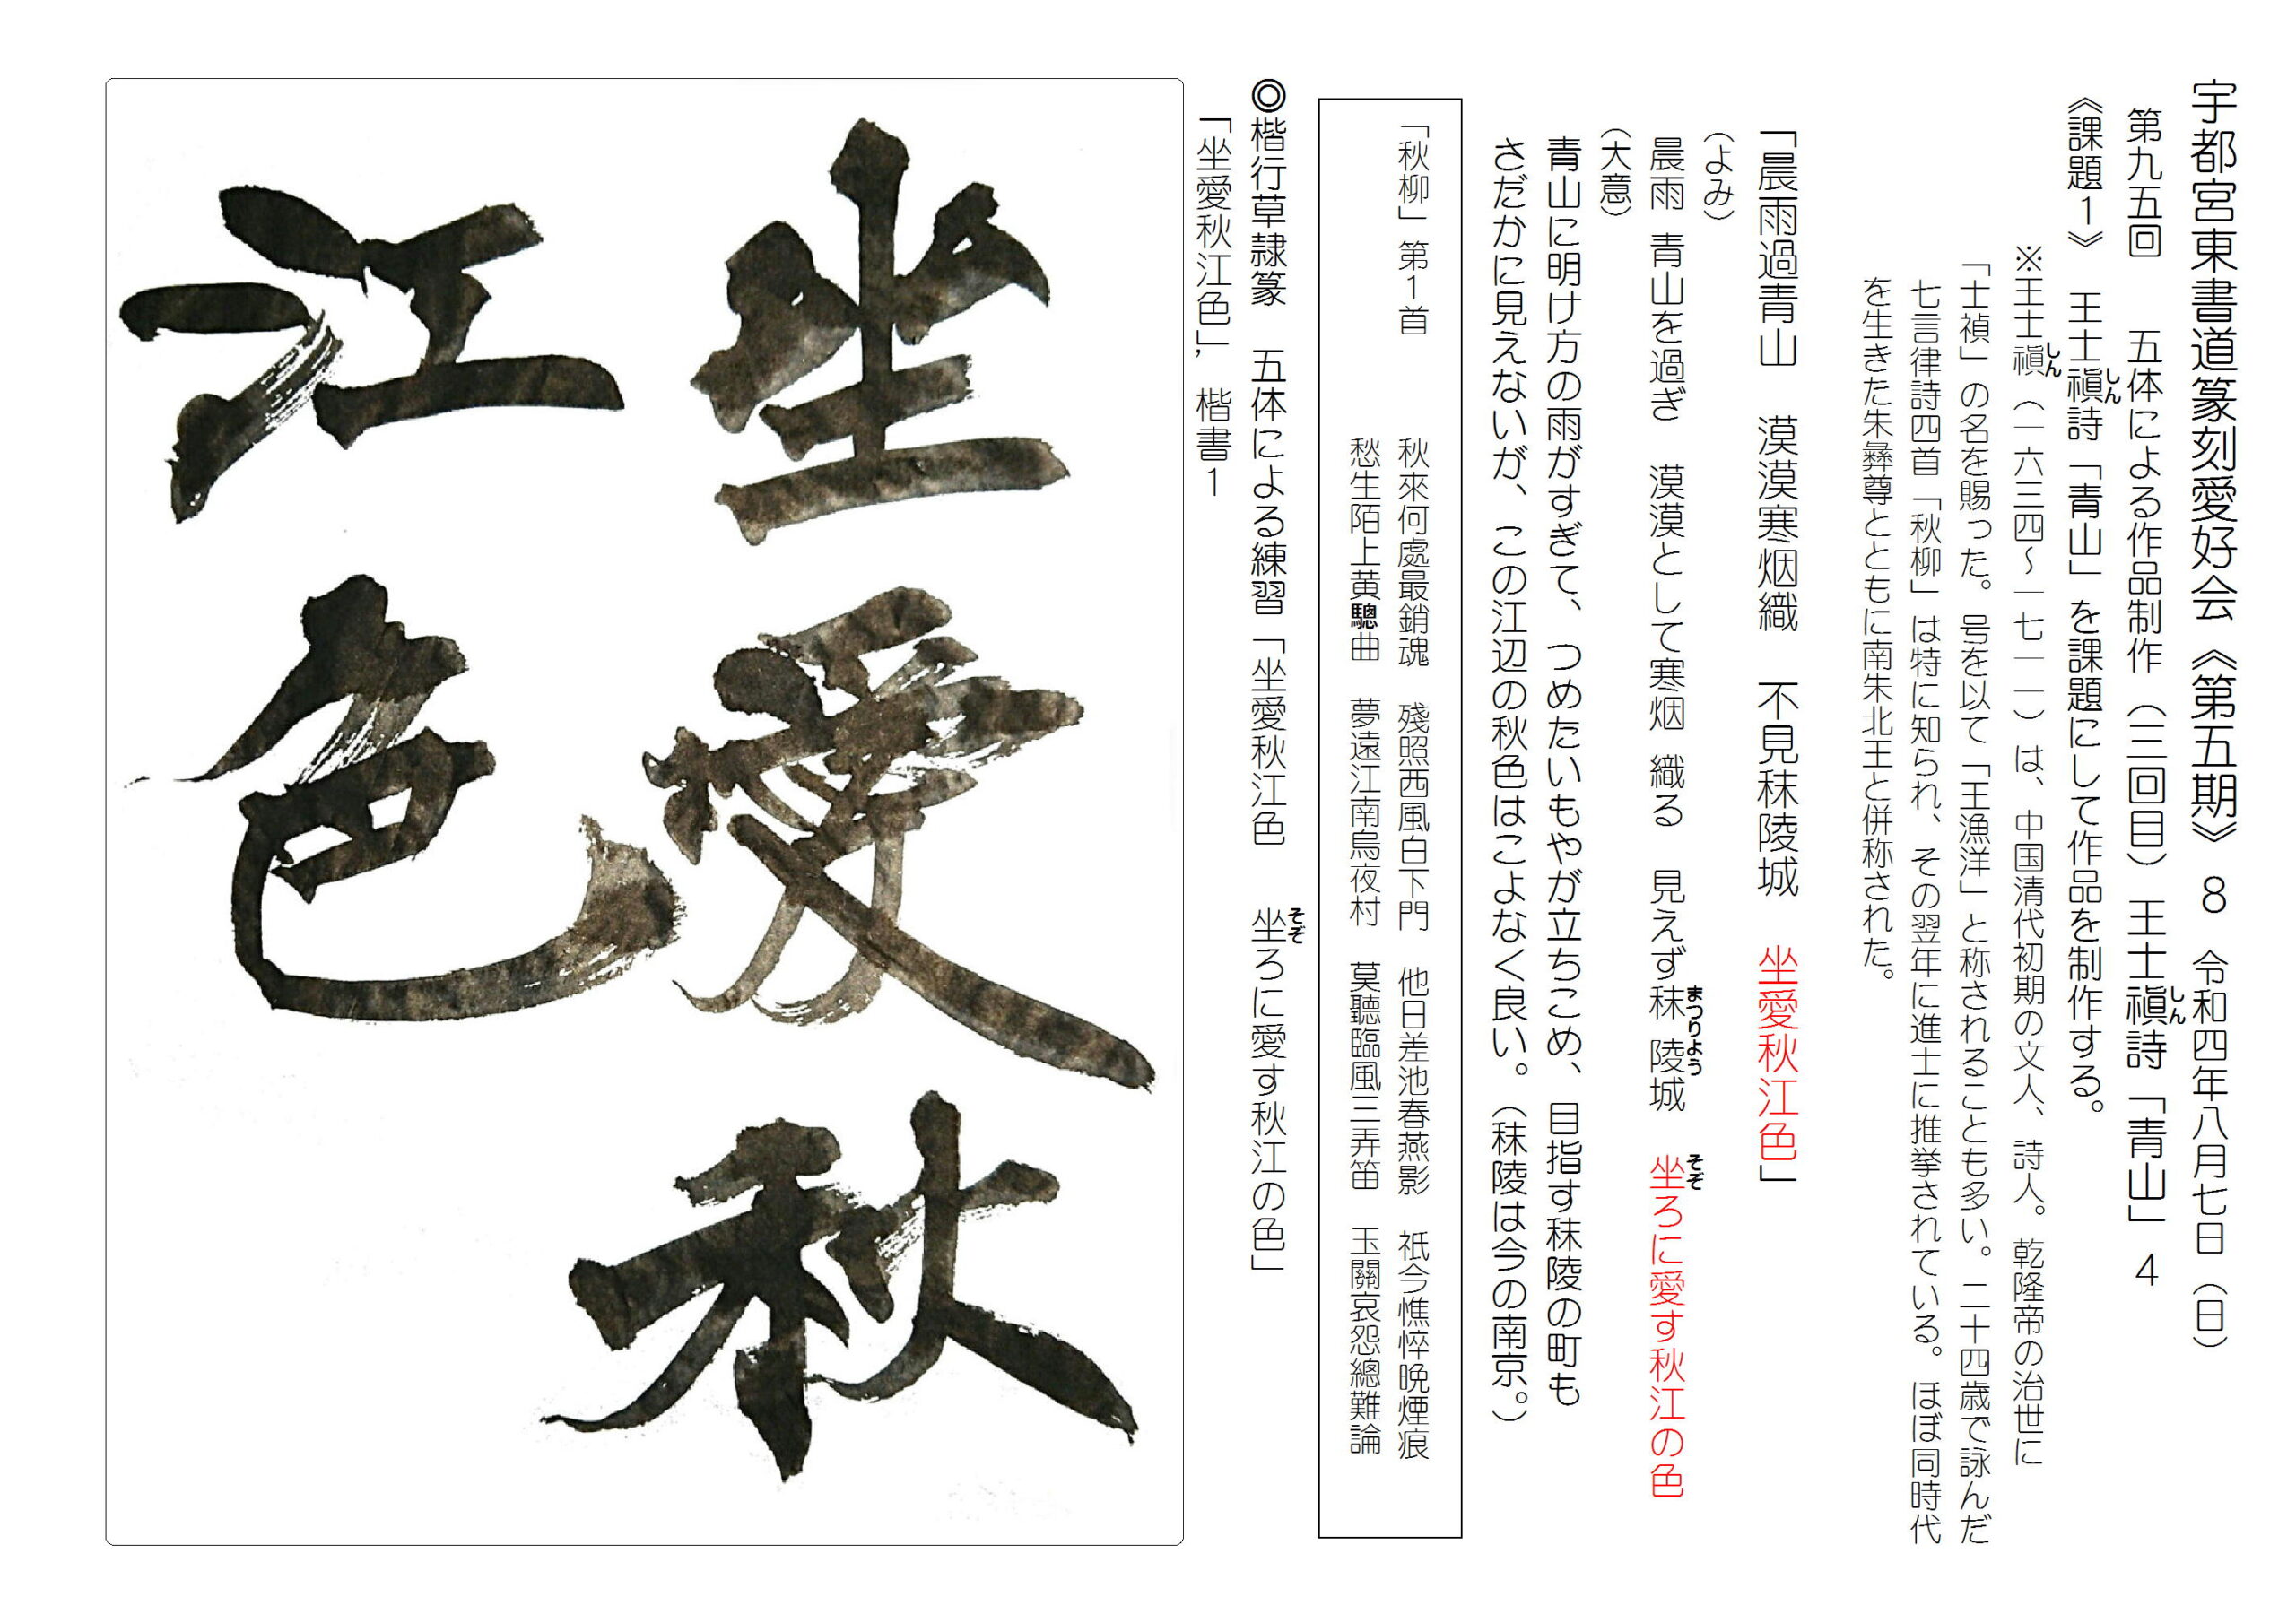 宇都宮東書道篆刻愛好会《第五期》8 令和四年八月七日(日)
第九五回 五体による作品制作(三回目)王士禛詩「青山」4
しん
《課題1》 王士禛詩「青山」を課題にして作品を制作する。
しん
※王士禛(一六三四～一七一一)は、中国清代初期の文人、詩人。乾隆帝の治世に
しん
「士禎」の名を賜った。号を以て「王漁洋」と称されることも多い。二十四歳で詠んだ
七言律詩四首「秋柳」は特に知られ、その翌年に進士に推挙されている。ほぼ同時代
を生きた朱彝尊とともに南朱北王と併称された。
「晨雨過青山 漠漠寒烟織 不見秣陵城 坐愛秋江色」
(よみ)
晨雨 青山を過ぎ 漠漠として寒烟 織る 見えず秣陵城 坐ろに愛す秋江の色
まつりよう
そぞ
(大意)
青山に明け方の雨がすぎて、つめたいもやが立ちこめ、目指す秣陵の町も
さだかに見えないが、この江辺の秋色はこよなく良い。(秣陵は今の南京。)
「秋柳」第1首 秋來何處最銷魂 殘照西風白下門 他日差池春燕影 祇今憔悴晩煙痕
愁生陌上黄驄曲 夢遠江南烏夜村 莫聽臨風三弄笛 玉關哀怨總難論
◎楷行草隷篆 五体による練習「坐愛秋江色 坐ろに愛す秋江の色」
そぞ
「坐愛秋江色」、楷書1
坐愛秋
江色